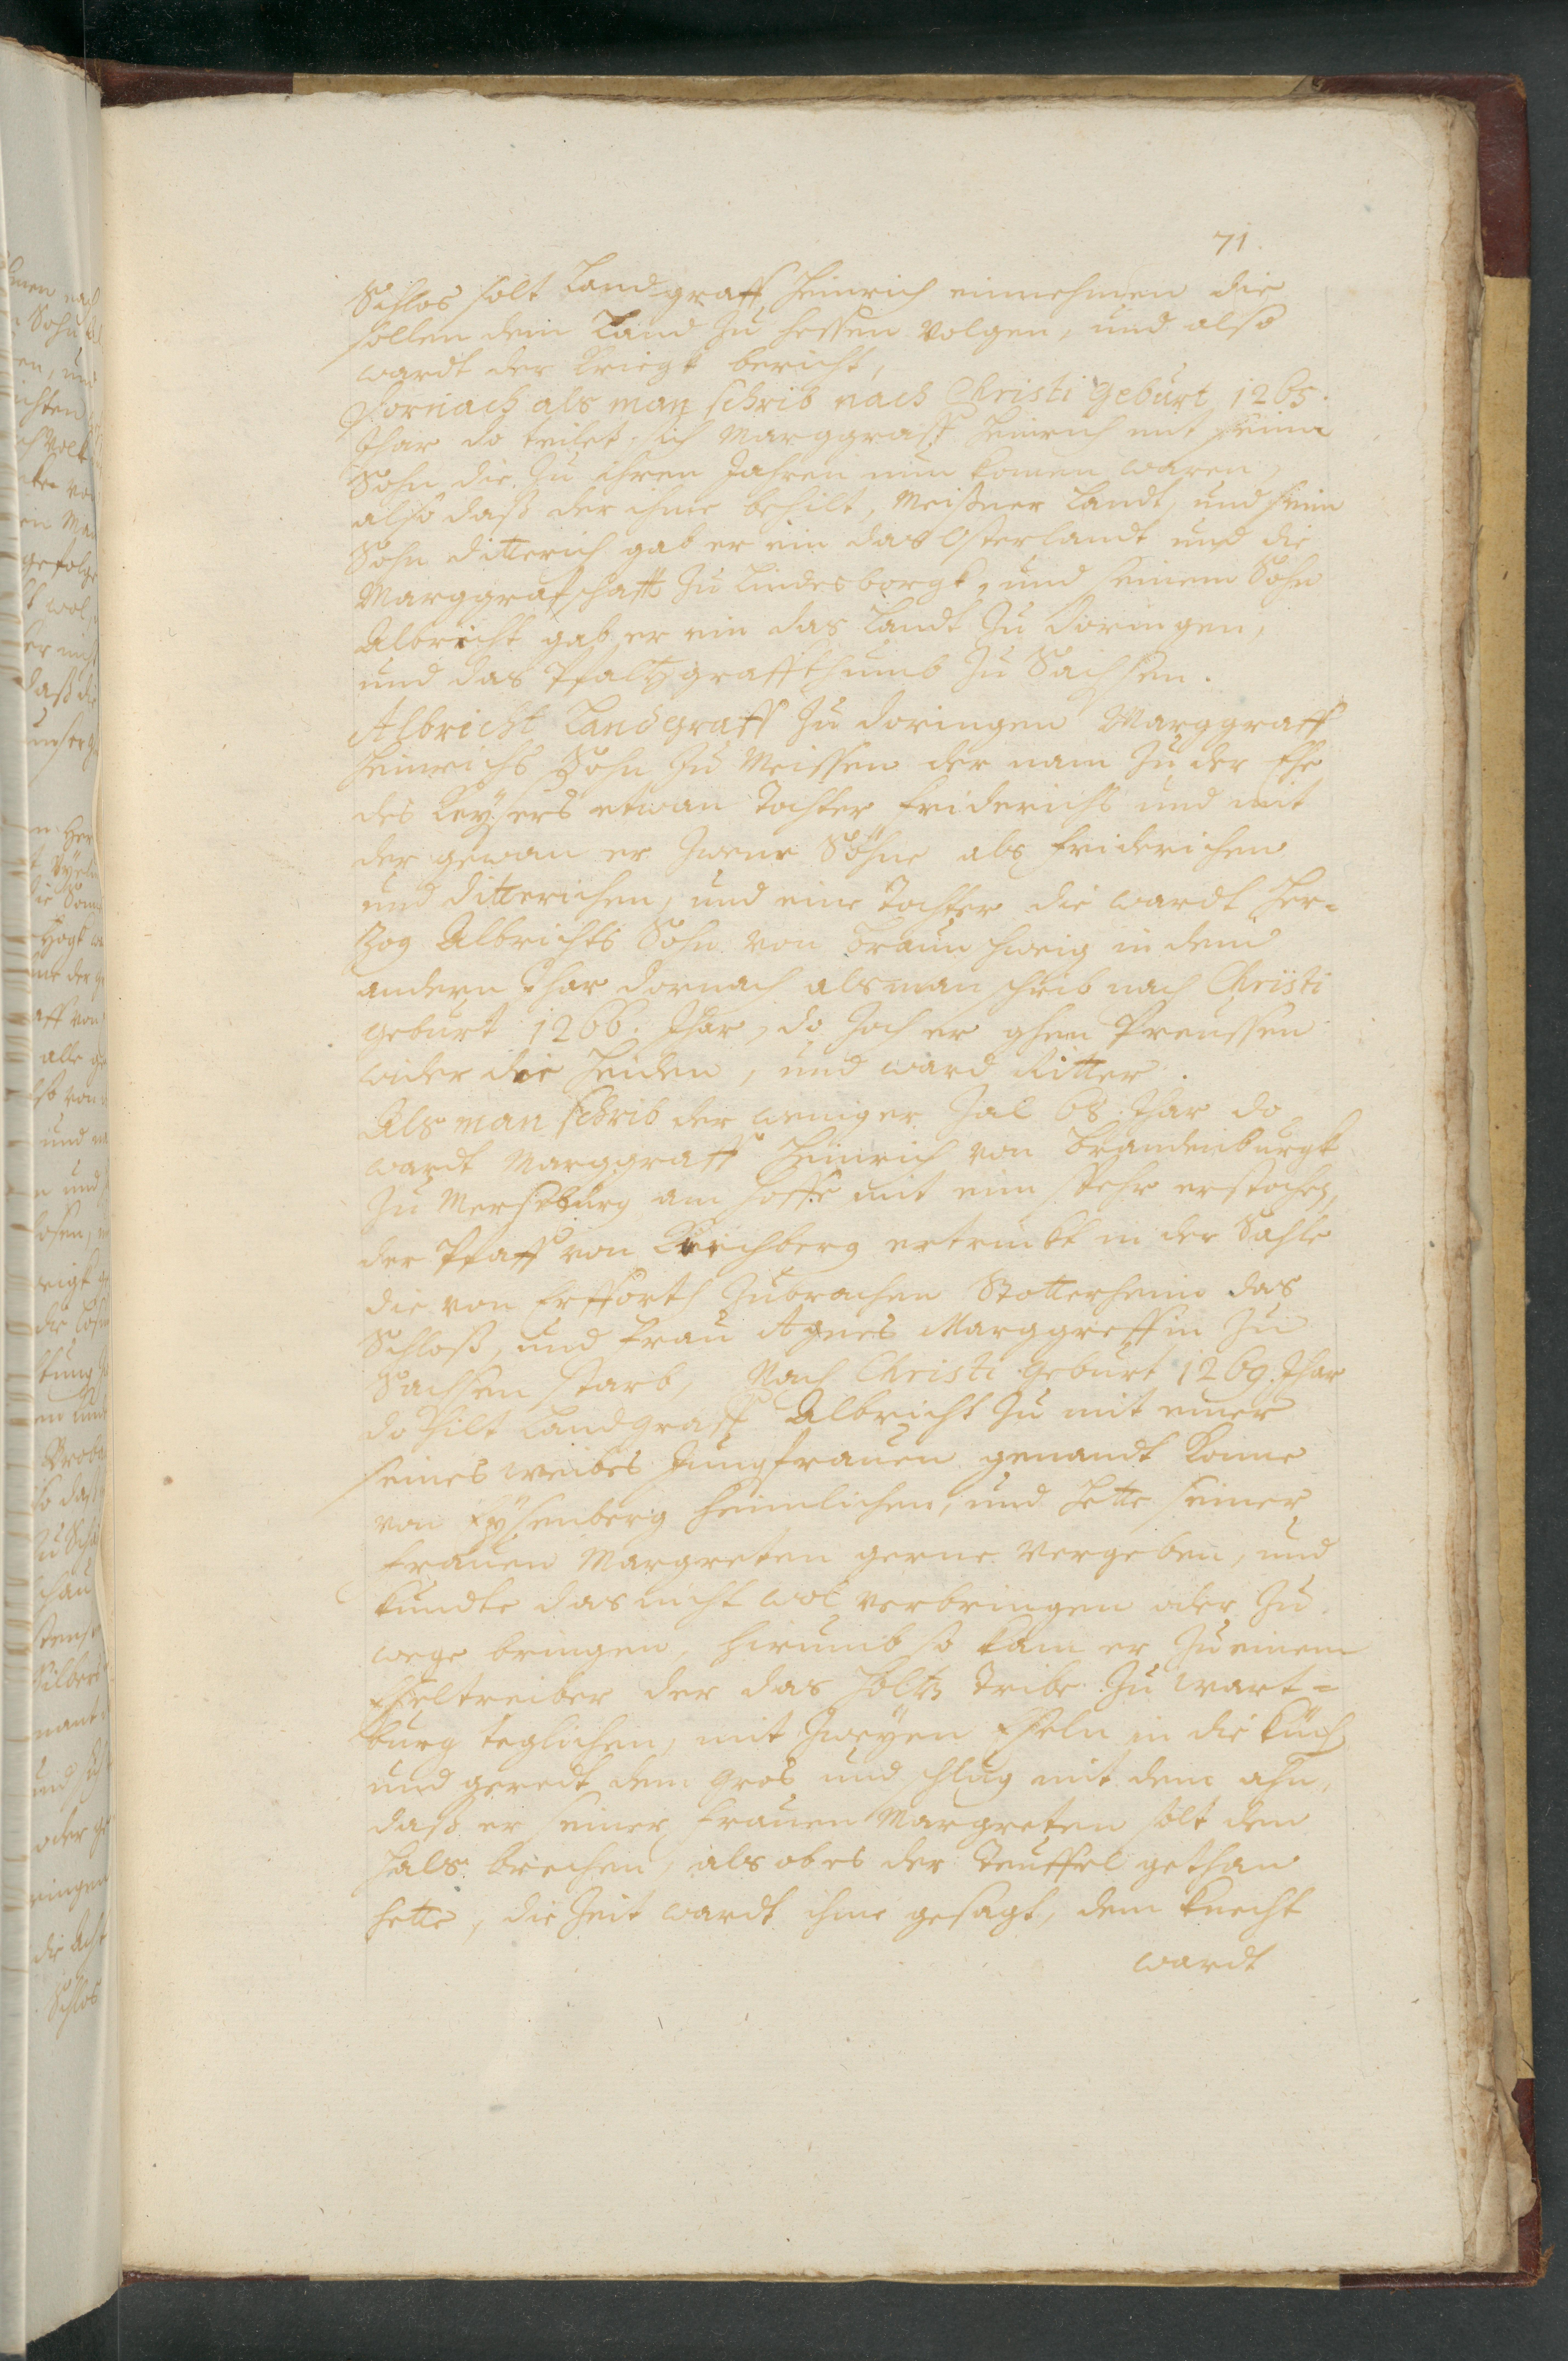 71.
Schlos solt Landgraff Heinrich einnehmen die
sollen dem Land zu Hessen volgen, und also
wardt der kriegk bericht,
Dornach als man schrib nach Christi geburt 1265.
Jhar do teilet sich Marggraff Heinrich mit seinen
Sohn die zu ihren Jahren nun komen waren,
also daß der ihme behilt, Meißner Landt, und sein
Sohn ditterich gab er ein das Osterlandt und die
Marggrafschafft zu Lindesborgk, und seinem Sohn
Albricht gab er ein das Landt zu Doringen,
und das Pfaltzgraffthumb zu Sachsen.
Albricht Landgraff zu doringen Marggraff
Heinrichs Sohn zu Meissen der nam zu der Ehe
des Keysers etwan Tochter friderichs und mit
der gewan er zwene Söhne als friderichen
und ditterichen, und eine Tochter die wardt Her=
zog Albrichts Sohn von Braunschweig in dem
andern Jhar dornach als man schrib nach Christi
geburt 1266. Jhar, do zoch er ghen Preussen
wider die Heiden, und ward Ritter.
Als man schrib der weniger Zal 68. Jhar do
wardt Marggraff Heinrich von Brandenburgk
zu Merseburg am hoffe mit eim sper erstochen,
der Pfaff von Kirchberg ertrinckt in der Sahle
die von Erfforth zubrachen Stotterheim das
Schloß, und frau Agnes Marggreffin zu
Sachsen starb, Nach Christi geburt 1269. Jhar
do hilt Landgraff Albricht zu mit einer
seines weibes Jungfrauen genandt Konne
von Eysenberg heimlichen, und hette seiner
frauen Margreten gerne vergeben, und
kundte das nicht wol verbringen oder zu
wege bringen, hirumb so kam er zu einem
Eseltreiber der das Holtz tribe zu Wart=
burg teglichen, mit zweyen Eseln in die küch
und geredt dem gros und schlug mit dem ahn,
daß er seiner frauen Margreten solt den
Hals brechen, als ob es der Teuffel gethan
hette, die Zeit wardt ihme gesagt, dem knecht
wardt